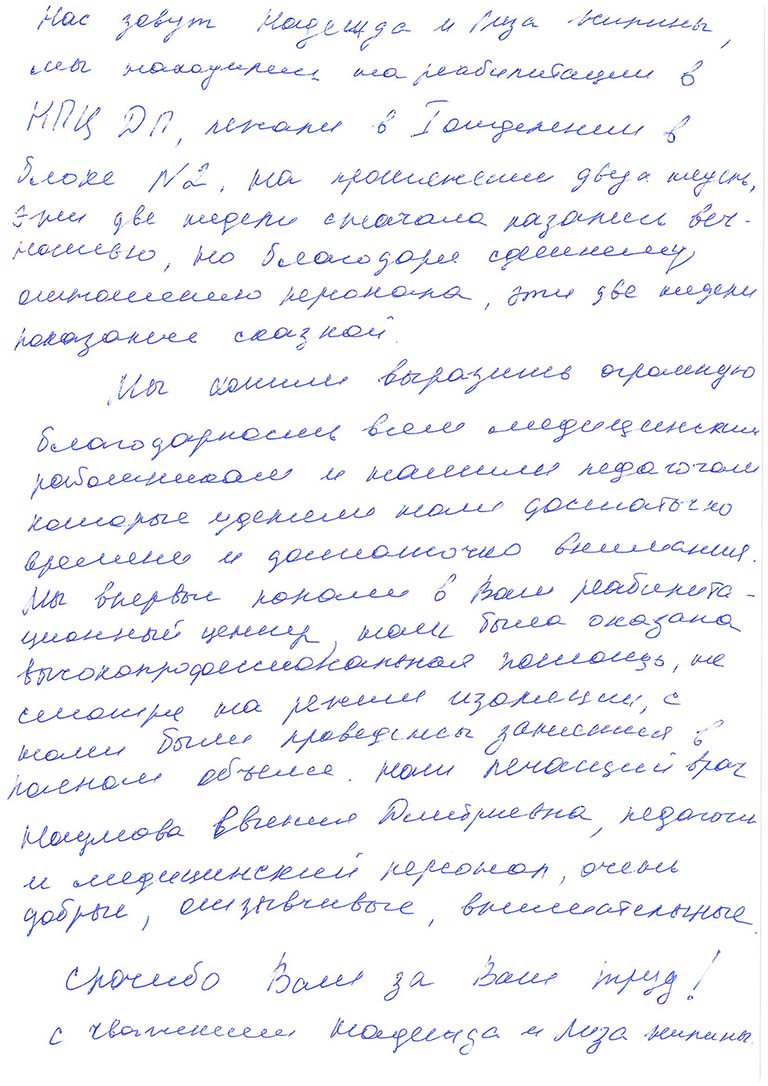 Нас зовут Надежда и Лиза Жирины,
мы находимся на реабилитации в
НПЦ ДП, лежали в I отделении в
блоке №2, на протяжении двух недель,
эти две недели сначала казались веч-
ностью, но благодаря
отношению персонала, эти две недели
показались сказкой.
Мы хотим выразить огромную
благодарность всем медицинским
работникам и нашим педагогам
которые уделили нам достаточно
времени и достаточно внимания.
Мы впервые попали в Ваш реабилита-
ционный центр, нам была оказана
высокопрофессиональная помощь, не
смотря на режим изоляции, с
нами были проведены занятия в
полном объеме. Наш лечащий врач
Наумова Евгения Дмитриевна, педагоги
и медицинский персонал, очень
добрые, отзывчивые, внимательные.
Спасибо Вам за Ваш труд!
с уважением Надежда и Лиза Жирины.